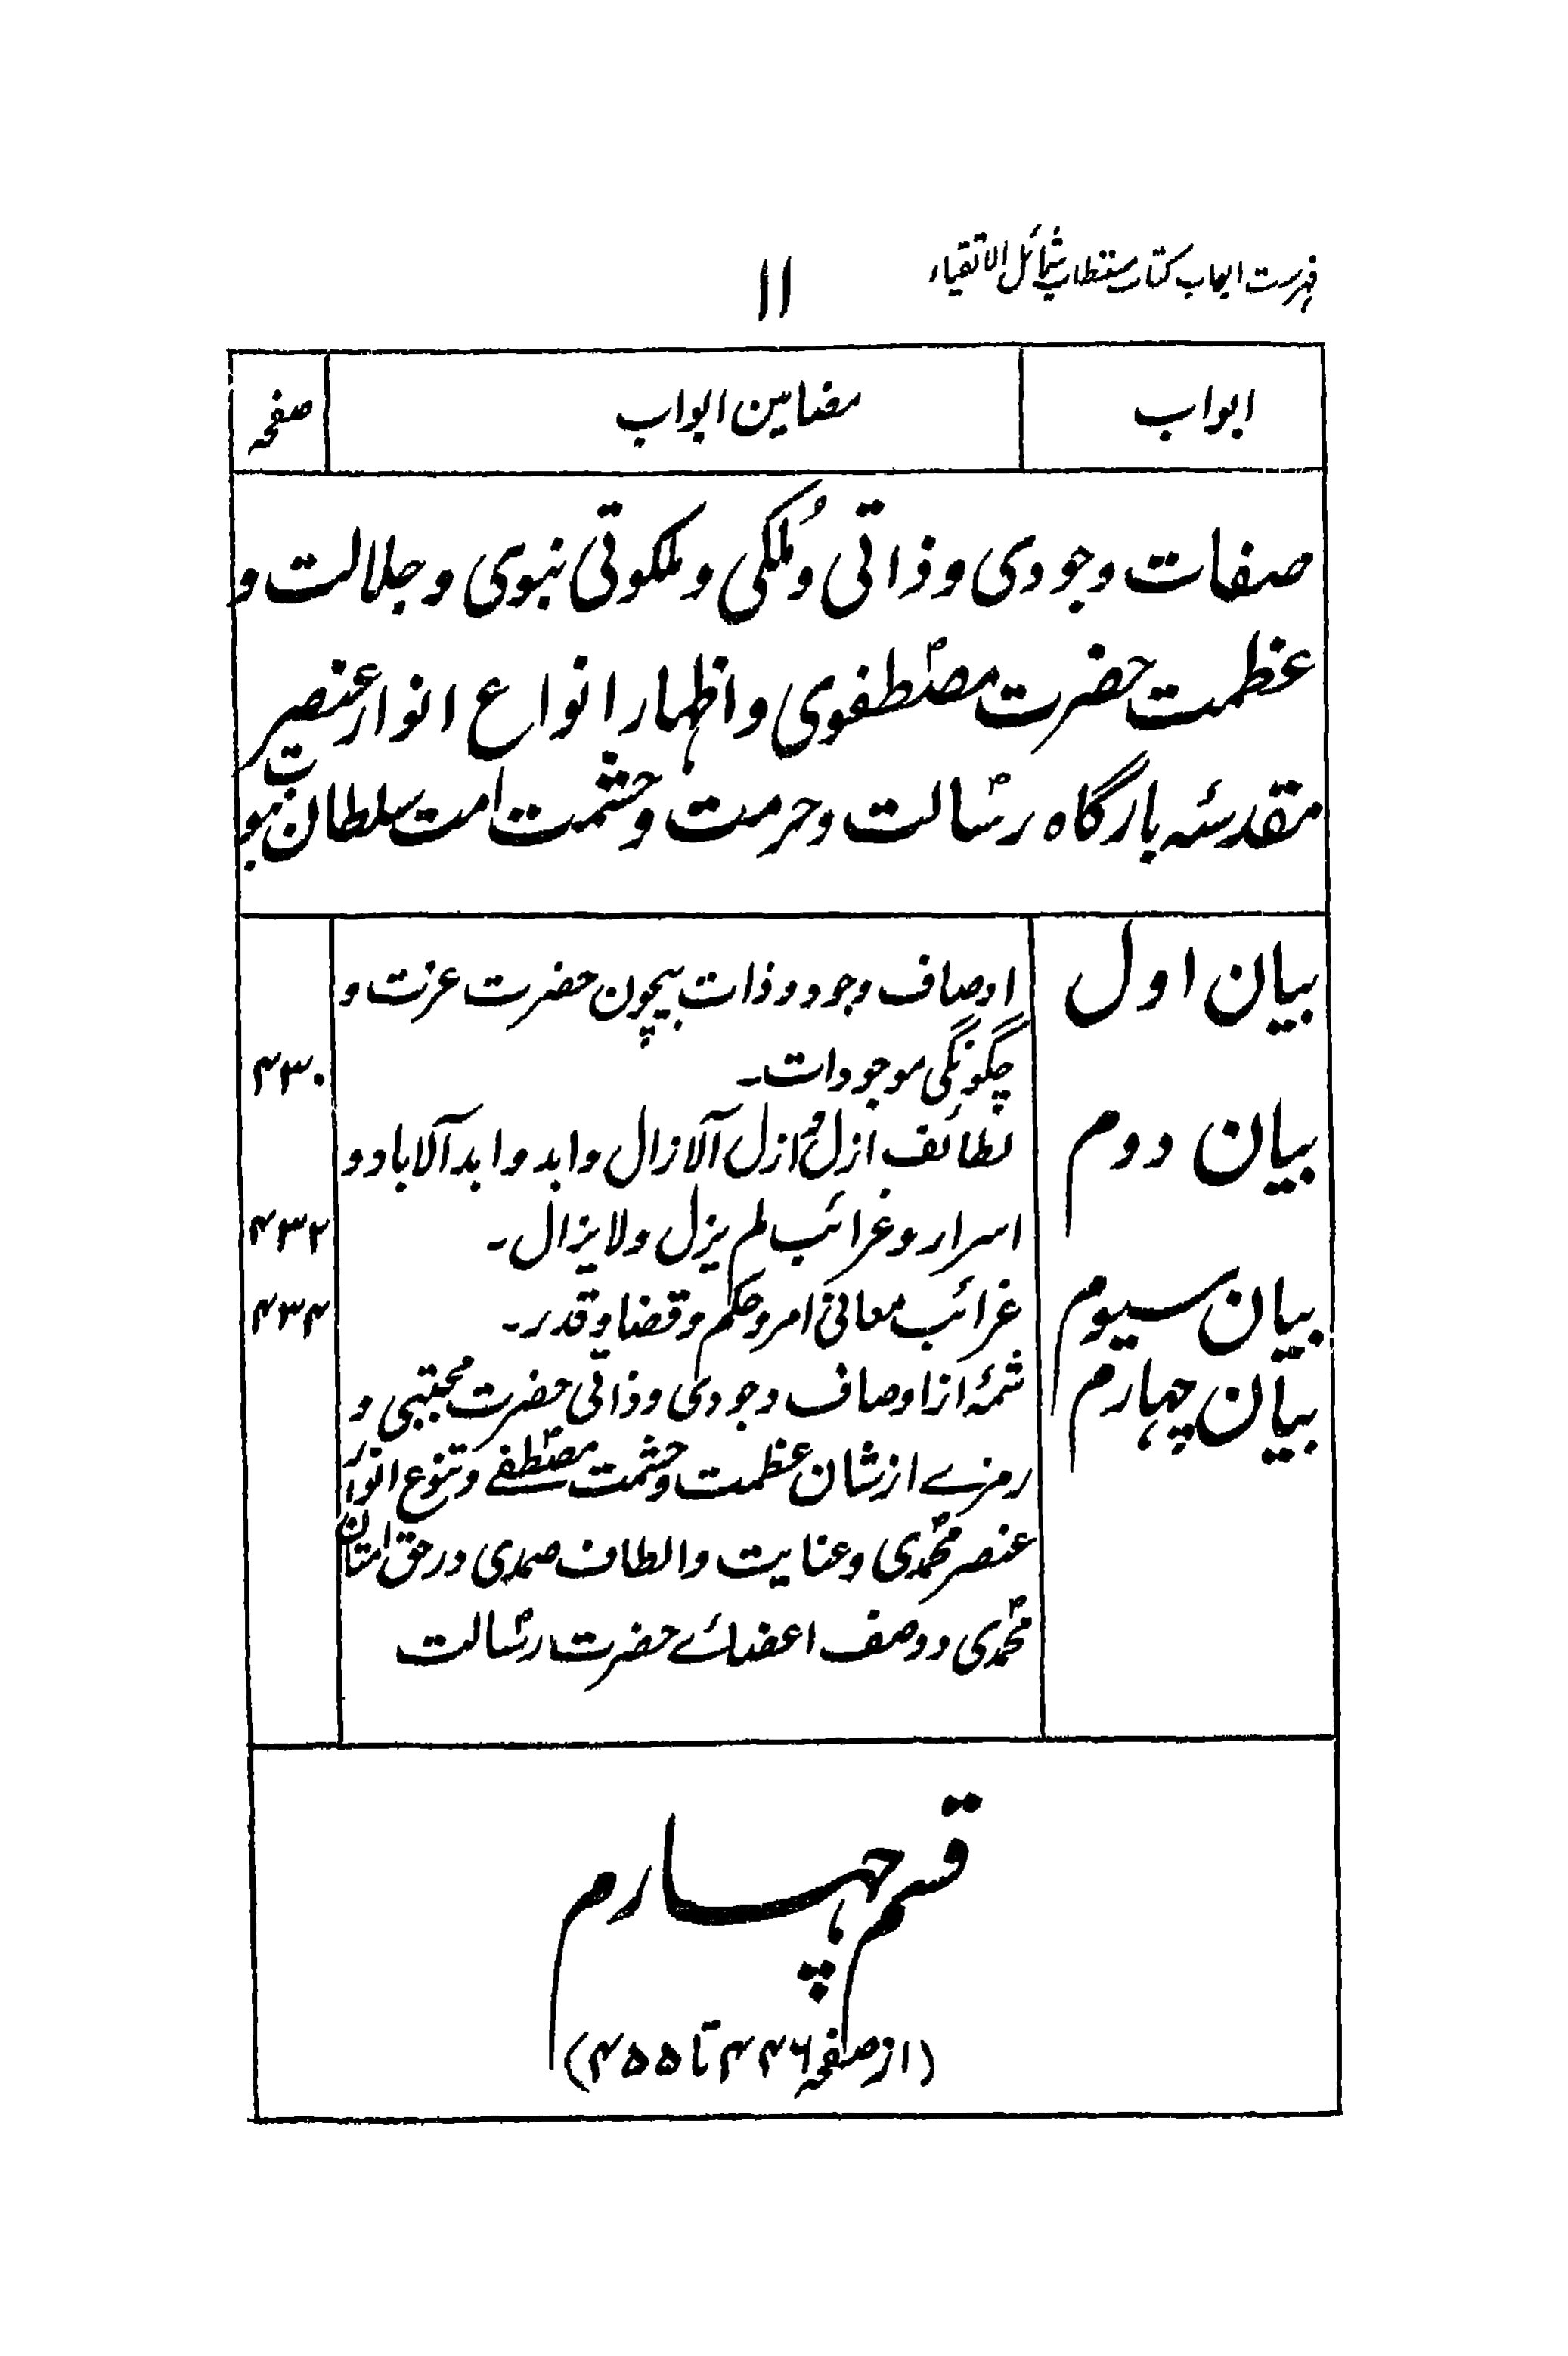 فہرست ابواب کتاب مستطاب شمائل الاتقیاء
۱۱
ابواب مضامین ابواب صفحہ
صفات وجودی و ذاتی و مُلکی و ملکوتی نبوی و جلالت و
عظمت حضرت مصطفوی و اظہار انواع انوار عنصر
مقدسہ بارگاہ رسالت و حرمت و حشمت امت سلطان نبوت
بیان اول اوصاف وجود و ذات بیچون حضرت عزت و
چگونگی موجودات۔ ۴۳۰
بیان دوم لطائف ازل و ازل آلازال و ابد و ابد آلاباد و
اسرار و غرائب لم یزل و لایزال۔ ۴۳۲
بیان سیوم غرائب معانی امر و حکم و قضا و قدر۔ ۴۳۴
بیان چہارم شمۂ از اوصاف وجودی و ذاتی حضرت مجتبی و
رمزے از شان عظمت و حشمت مصطفے و تنوع انوار
عنصر محمدی و عنایت و الطاف صمدی در حق امتان
محمدی و وصف اعضائے حضرت رسالت
قسم چہارم
(از صفحہ ۴۴۶ تا ۴۵۵)